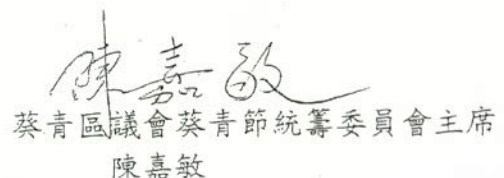 陳嘉敏
葵青區議會葵青節統籌委員會主席
陳嘉敏